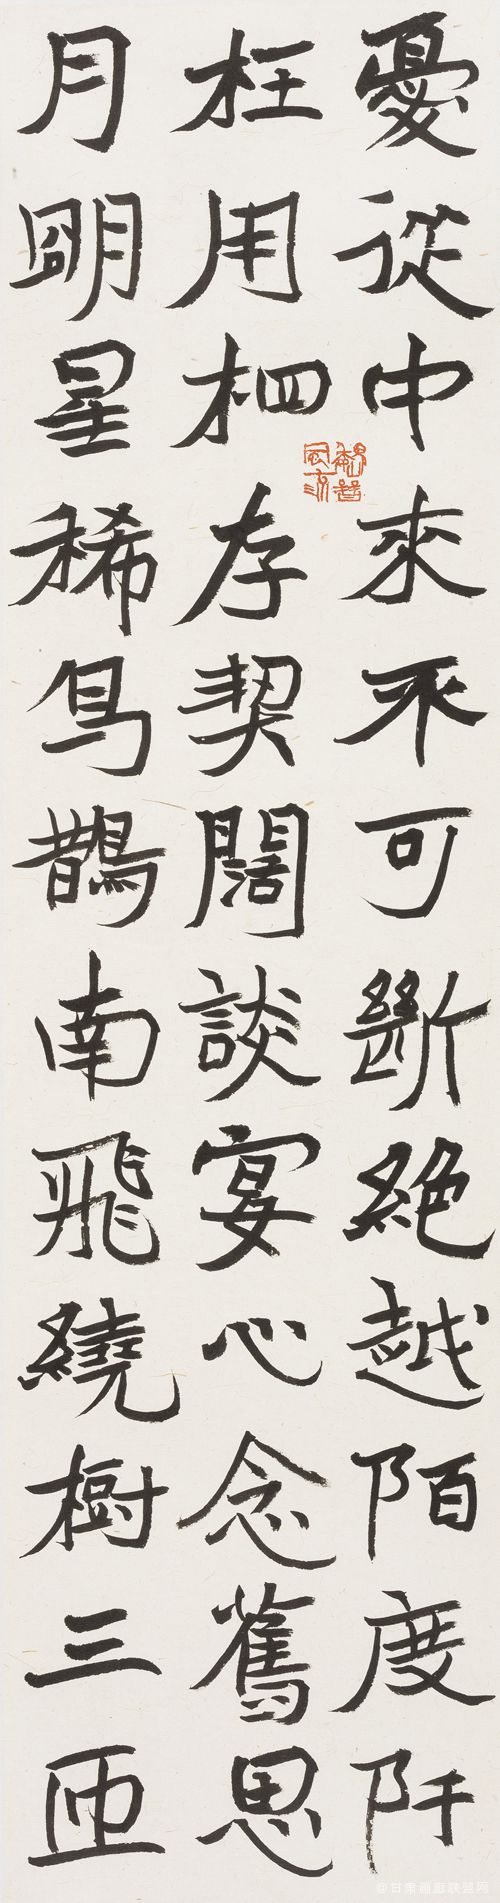 憂從中來不可斷絕越陌度阡
枉用相存契闊談宴心念舊恩
月明星稀烏鵲南飛繞樹三匝
@甘肃画廊联盟网